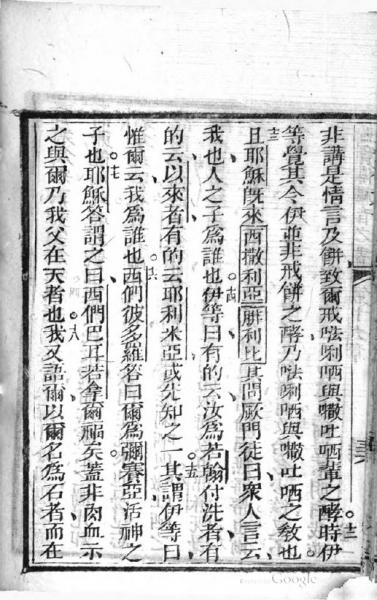 非講是情言及餅致爾戒㗭唎哂與𠿪吐哂輩之酵時伊
十二
等覺其令伊並非戒餅之酵乃㗭唎哂與𠿪吐哂之敎也
十三
且耶穌旣來西撒利亞腓利比其問厥門徒曰衆人言云
我也人之子爲誰也伊等曰有的云汝爲若翰付洗者有
十四
的云以來者有的云耶利米亞或先知之一其謂伊等曰
十五
惟爾云我爲誰也西們彼多羅答曰爾爲彌賽亞活神之
十六
子也耶穌答謂之曰西們巴耳若拿爾福矣蓋非肉血示
十七
之與爾乃我父在天者也我又語爾以爾名爲石者而在
十八
Google